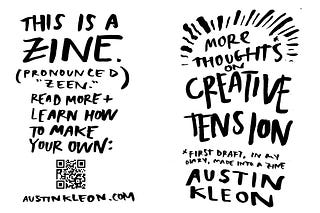 THIS IS A
ZINE.
(PRONOUNCED
"ZEEN.")
READ MORE +
LEARN HOW
TO MAKE
YOUR OWN:
AUSTINKLEON.COM
MORE
THOUGHTS
ON
CREATIVE
TENSION
*FIRST DRAFT, IN MY
DIARY, MADE INTO A ZINE
AUSTIN
KLEON